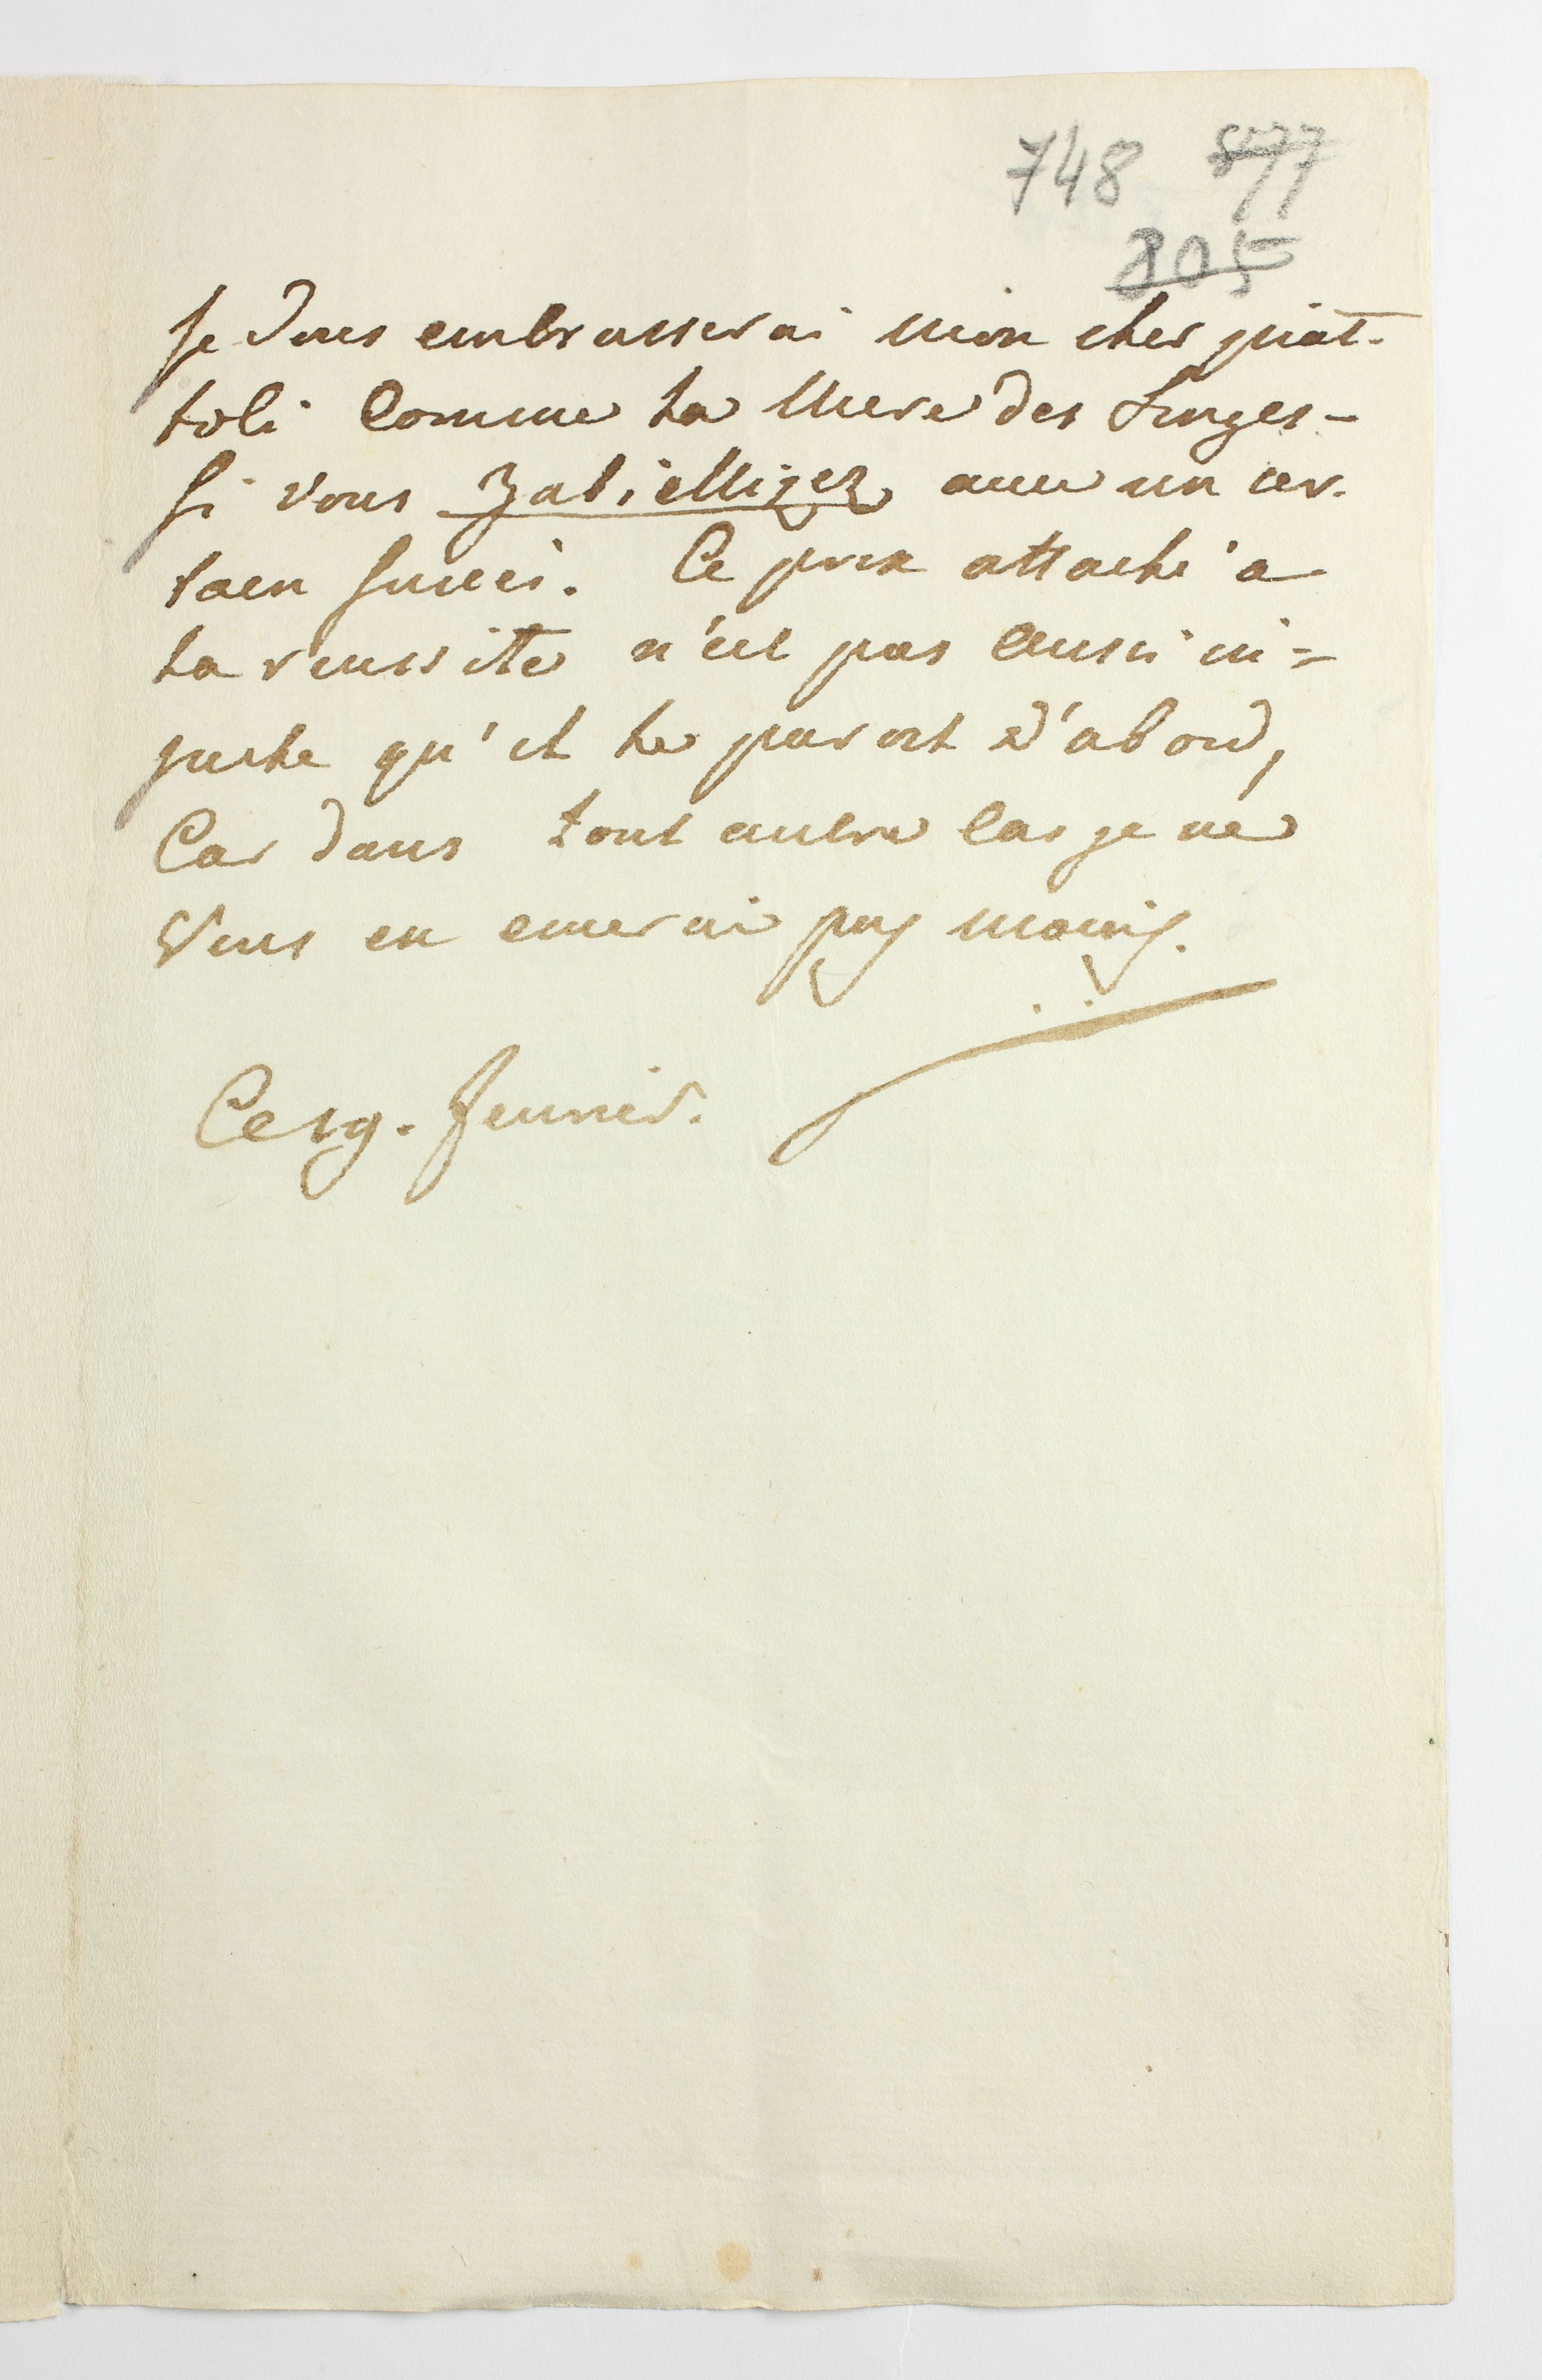 748 877
805
Je Vous embrasserai mon cher piat-
toli Comme la Mere des Singes-
Si vous Zabiellizez avec un cer-
taen succès. Ce prix attaché a
la reussite n'est pas aussi in=
juste qu'il le parait d'abord,
Car dans tout autre cas je ne
Vous en emerai pas moins.
Ce 19. Jenvier.